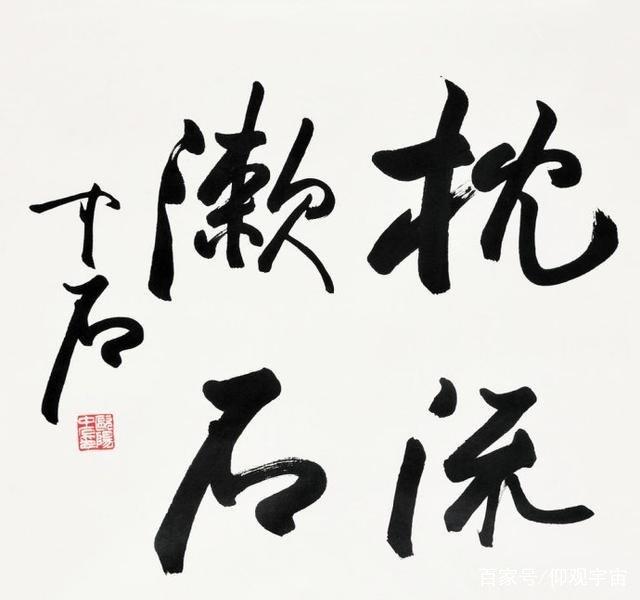 枕流
漱石
中石
百家号/仰观宇宙